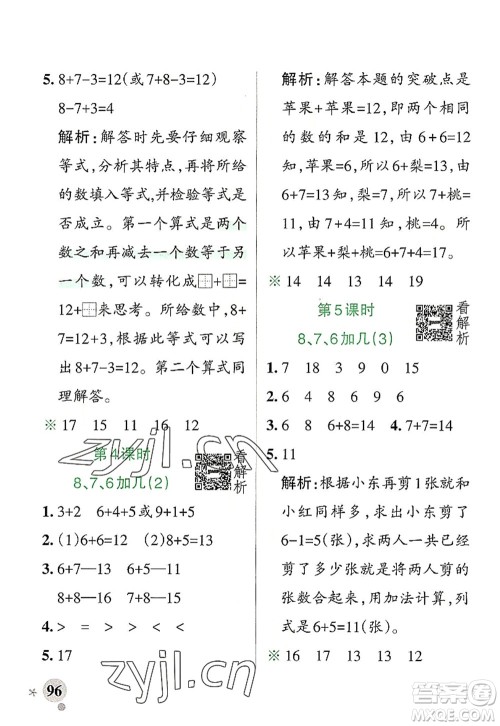 5. 8+7-3=12(或7+8-3=12)
8-7+3=4
解析:解答时先要仔细观察
等式,分析其特点,再将所给
的数填入等式,并检验等式是
否成立。第一个算式是两个
数之和再减去一个数等于另
一个数,可以转化成□+□=
12+□来思考。所给数中,8+
7=12+3,根据此等式可以写
出:8+7-3=12。第二个算式同
理解答。
※ 17 15 11 16 12
第4课时
8、7、6加几(2)
看解析
1. 3+2 6+4+5 6+9或9+6
2. (1)6+6=12 (2)8+7=15
3. 6+7—13 6+5—11
8+8—16 7+8—15
4. > = > < <
5. 17
解析:解答本题的突破点是
苹果+苹果=12,即两个相同
的数的和是12,由6+6=12
知,苹果=6,所以6+梨=13,由
6+7=13知,梨=7,所以7+桃=
11,由7+4=11知,桃=4,所以
苹果+梨+桃=6+7+4=17。
※ 14 14 13 14 19
第5课时
8、7、6加几(3)
看解析
1. 7 18 3 9 0 15
2. 6 6 8 9
3. 6 8 6+8=14 4. 7+7=14
5. 11
解析:根据小东再剪1张就和
小红同样多,求出小东剪了
6-1=5(张),求两人一共已经
剪了多少张,就是把两人的剪纸
张数合起来,用加法计算,列
式为6+5=11(张)。
※ 16 16 13 17 12
96
zyjl.cn
zyjl.cn
答案圈
MXQE.COM